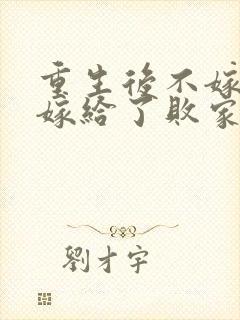 重生後不嫁
嫁給了敗家
劉才宇